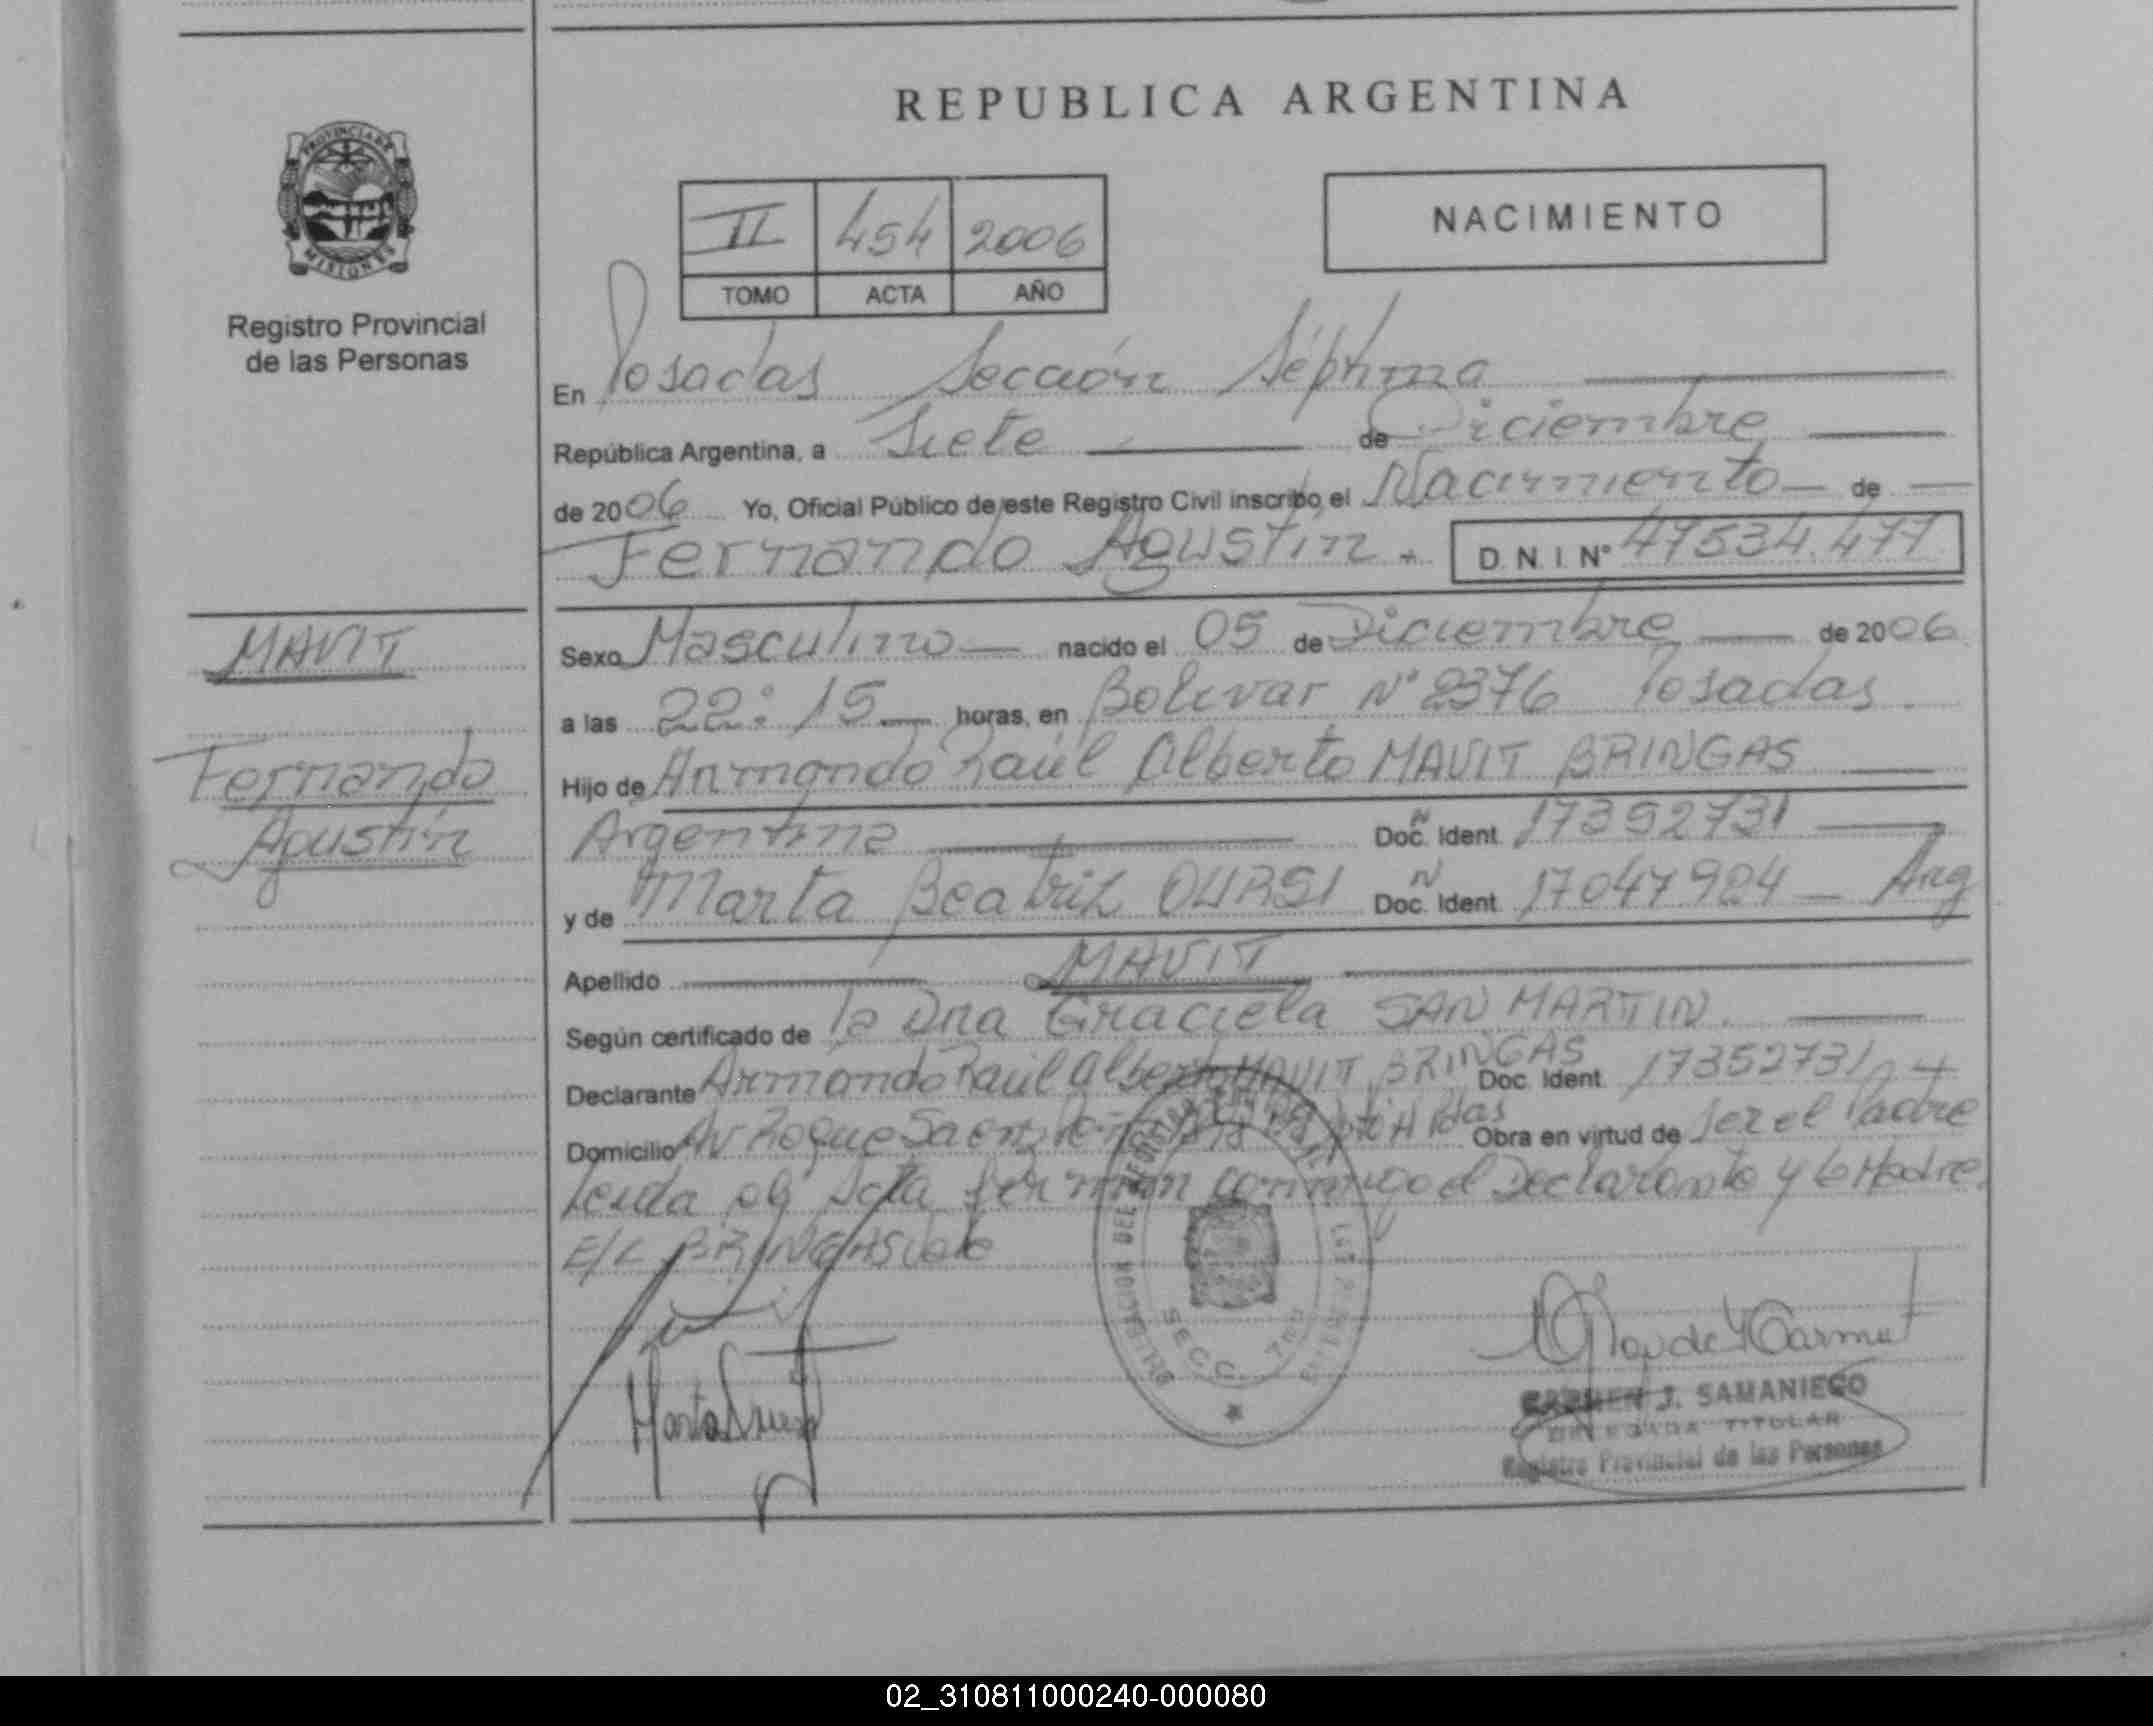 REPUBLICA ARGENTINA
PROVINCIA DE
MISIONES
Registro Provincial
de las Personas
II 454 2006
TOMO ACTA AÑO
NACIMIENTO
En Posadas Sección Séptima
República Argentina, a Siete de Diciembre
de 2006 Yo, Oficial Público de este Registro Civil inscribo el Nacimiento de
Fernando Agustín D.N.I. Nº 47534.477
MAVIT
Fernando
Agustín
Sexo Masculino nacido el 05 de Diciembre de 2006
a las 22:15 horas, en Bolivar Nº 2376 Posadas.
Hijo de Armando Raúl Alberto MAVIT BRINGAS
Argentina Doc. Ident. N 17352731
y de Marta Beatriz OURSI Doc. Ident. N 17047924 Arg
Apellido MAVIT
Según certificado de la Dra Graciela SAN MARTIN.
Declarante Armando Raúl Alberto MAVIT BRINGAS Doc. Ident. 17352731
Domicilio Av Roque Saenz Pdas Obra en virtud de ser el Padre
Leida el Acta firman conmigo el Declarante y la Madre.
E/L BRINGAS vale
SECC. 7ma
Marta
CARMEN J. SAMANIEGO
DELEGADA TITULAR
Registro Provincial de las Personas
02_310811000240-000080